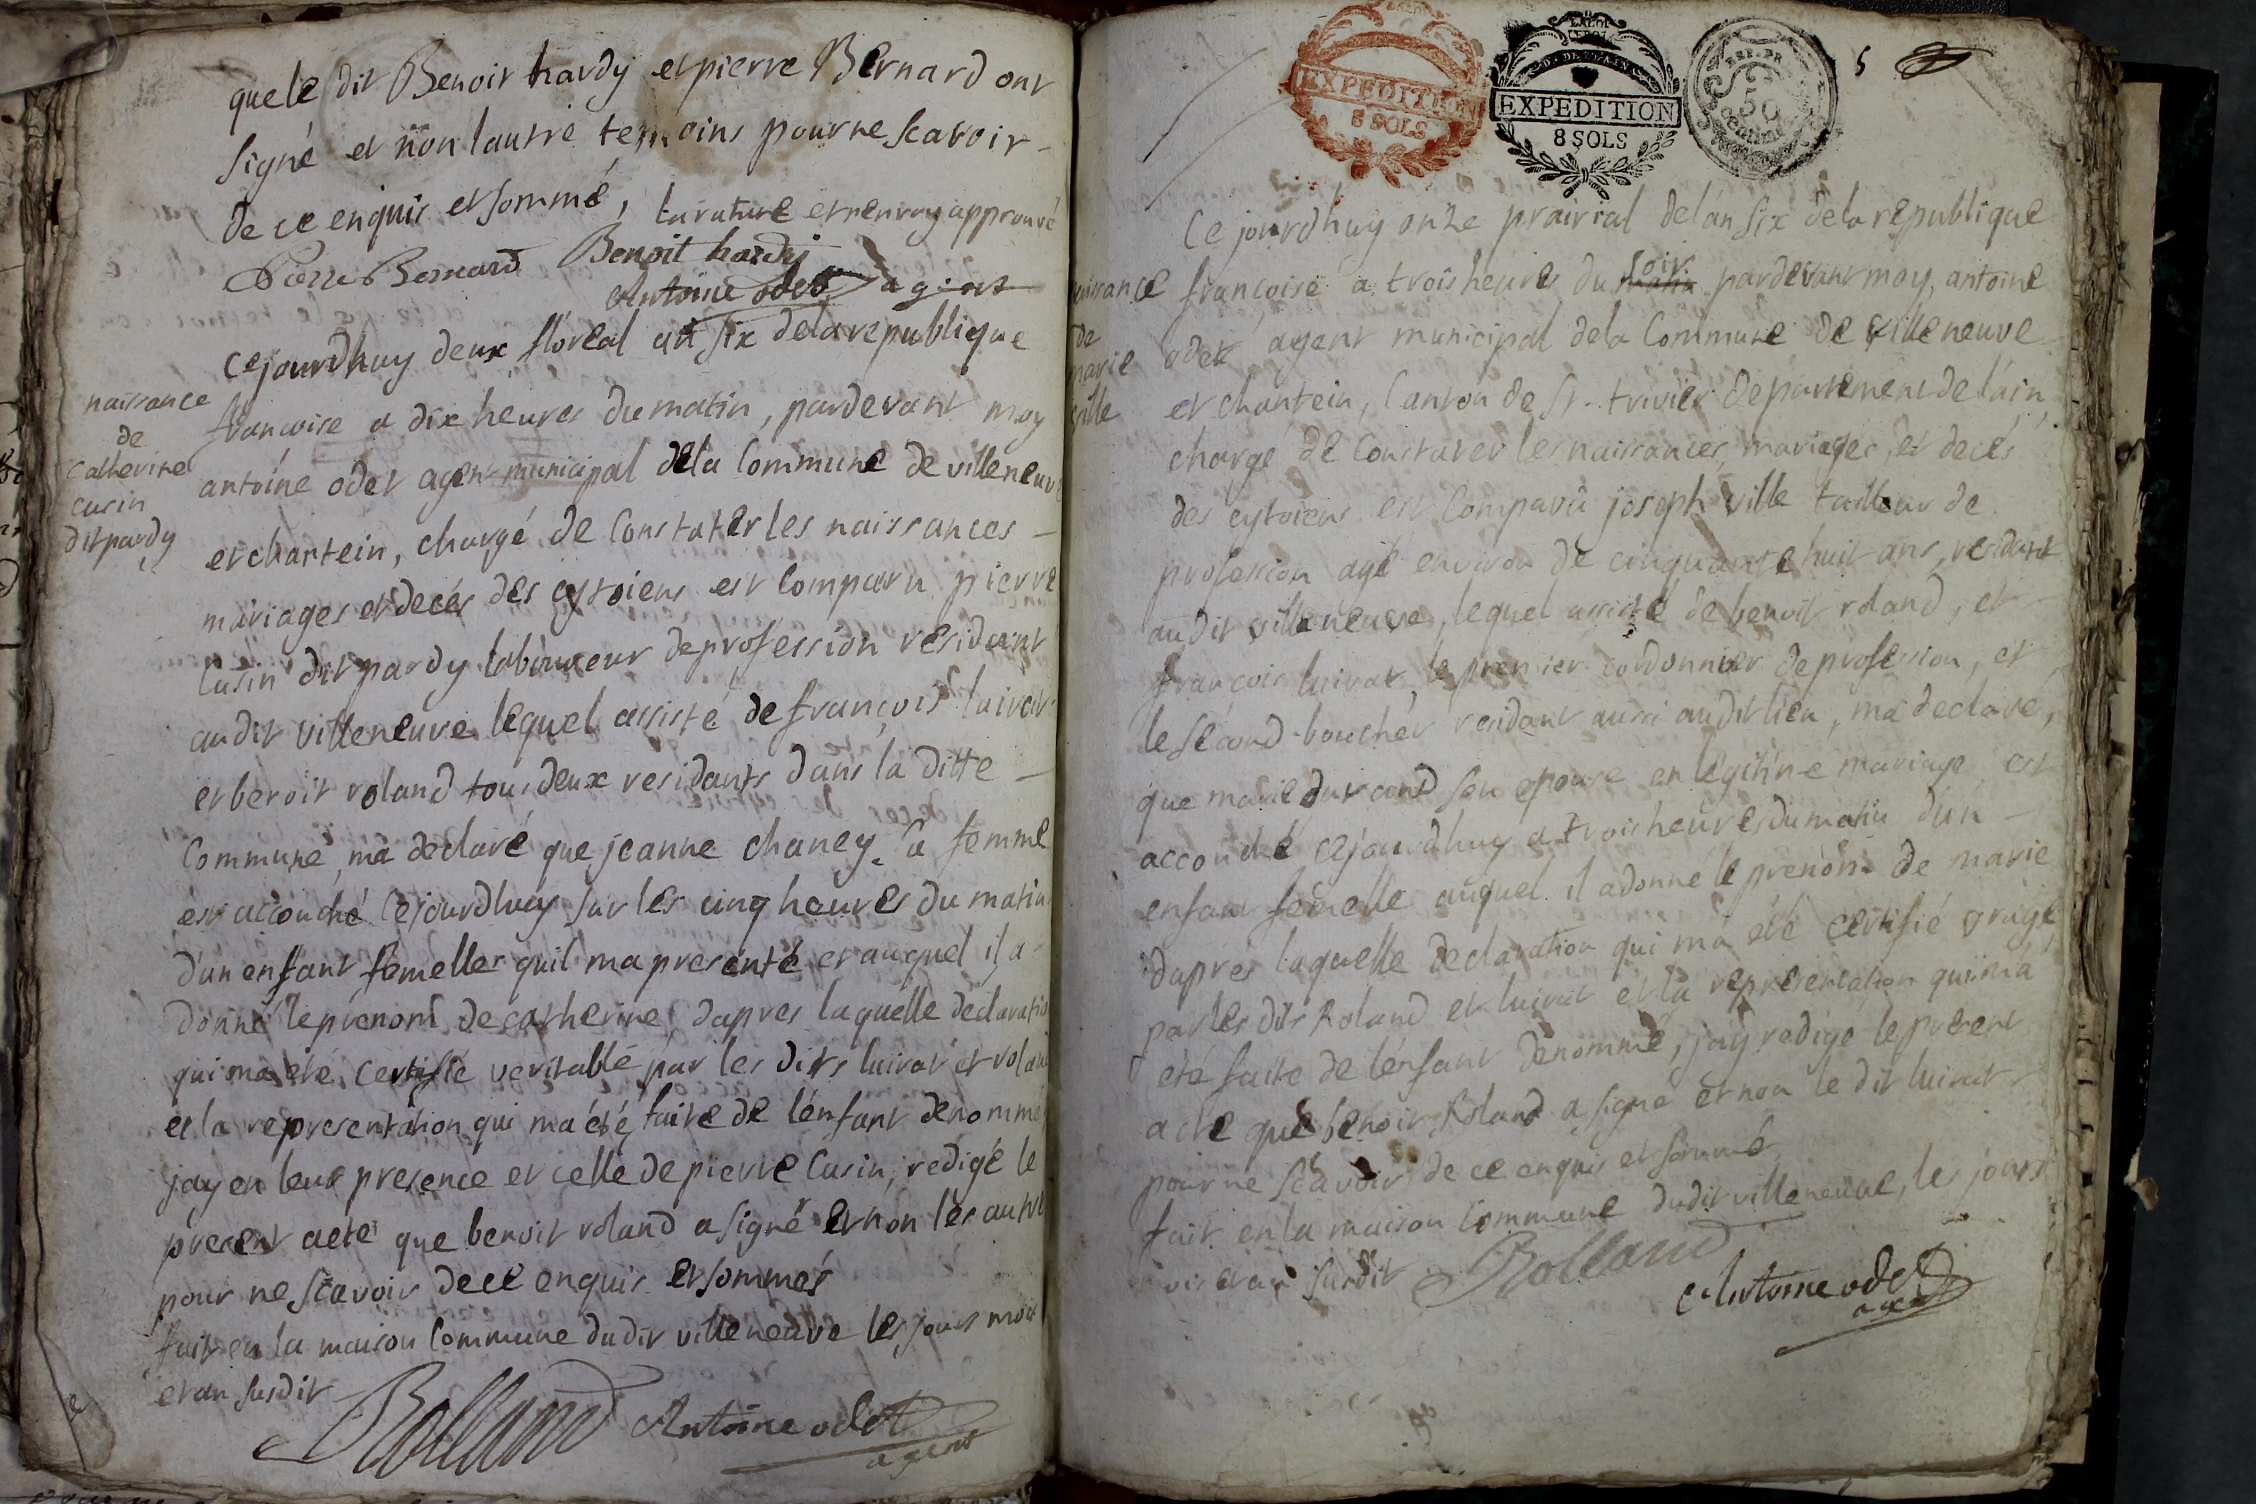 que le dit Benoit hardy et pierre Bernard ont
signé et non lautre temoins pour ne scavoir -
de ce enquis et sommé, turature et renvoy approuvé
Pierre Bernard Benoit hardy
Antoine odet agent
naissance
de
Catherine
cusin
dit pardy
Cejourdhuy deux floréal an six de la republique
francoise a dix heures du matin, pardevant moy
antoine odet agent municipal dela Commune de villeneuv
et chantein, chargé de Constater les naissances -
mariages et decés des cytoiens est Comparu pierre
Cusin dit pardy laboureur de profession residant
audit villeneuve lequel assisté de françois luirat
et benoit roland tous deux residants dans la ditte -
Commune, ma declaré que jeanne chaney sa femme
est accouché Cejourdhuy sur les cinq heures du matin
d'un enfant femelle quil ma presenté et auquel il a -
donné le prenom de catherine, dapres laquelle declaratio
qui ma été certifié veritable par les dits luirat et rolan
et la representation qui ma été faite de lénfant denommé
jay en leur presence et celle de pierre Cusin, redigé le
present acte que benoit roland a signé et non les autre
pour ne scavoir de ce enquis et sommés
fait en la maison Commune dudit villeneuve les jours moi
et an susdit
Rolland Antoine odet
agent
EXPEDITION
8 SOLS
EXPEDITION
8 SOLS
50
centimes
5
aissance
de
marie
ville
Ce jourdhuy onze prairial de lan six dela republique
francoise a trois heures du soir matin pardevant moy, antoine
odet agent municipal dela Commune de villeneuve
et chantein, Canton de St. trivier departement de lain,
chargé de Constater les naissances, mariages, et decés
des cytoiens est Comparu joseph ville tailleur de
profession agé environ de cinquante huit ans, residant
audit villeneuve, lequel assisté de benoit roland, et -
françois luirat, le premier cordonnier de profession, et
le second boucher residant aussi audit lieu, ma declaré,
que marie durand son epouse en legitime mariage est
accouché cejourdhuy a trois heures du matin d'un -
enfant femelle auquel il a donné le prenom de marie
dapres laquelle declaration qui ma été certifié
par les dits Roland et luirat et la representation qui ma
été faite de lénfant denommé, jay redigé le present
acte que benoit Roland a signé et non le dit luirat
pour ne scavoir de ce enquis et sommé
fait en la maison Commune dudit villeneuve, les jours
et an susdit Rolland
Antoine odet
agent